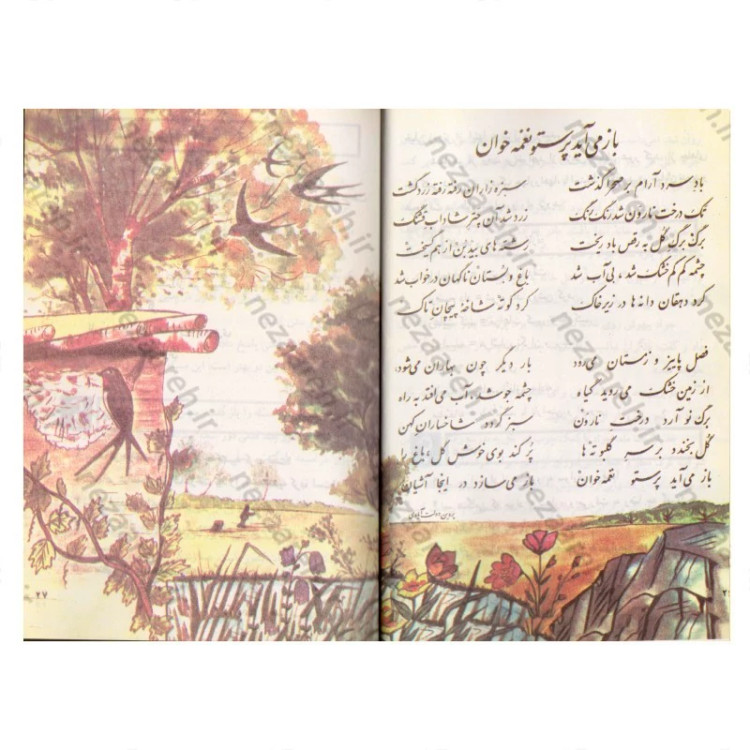 باز می‌آید پرستو نغمه‌خوان
باد سرد آرام بر صحرا گذشت سبزه‌زاران رفته رفته زرد گشت
تک درخت نارون شد رنگ رنگ زرد شد آن چتر شاداب قشنگ
برگ برگ گل به رقص باد ریخت رشته‌های بید بن از هم گسیخت
چشمه کم کم خشک شد، بی‌آب شد باغ و بستان ناگهان در خواب شد
کرد دهقان دانه‌ها در زیر خاک کرد کوته شاخهٔ پیچان تاک
فصل پاییز و زمستان می‌رود بار دیگر چون بهاران می‌شود
از زمین خشک می‌روید گیاه چشمه جوشد، آب می‌افتد به راه
برگ نو آرد درخت نارون سبز گردد شاخساران کهن
گل بخندد بر سر گلبوته‌ها پر کند بوی خوش گل، باغ را
باز می‌آید پرستو نغمه‌خوان باز می‌سازد در اینجا آشیان
پروین دولت‌آبادی
۲۷
nezaareh.ir